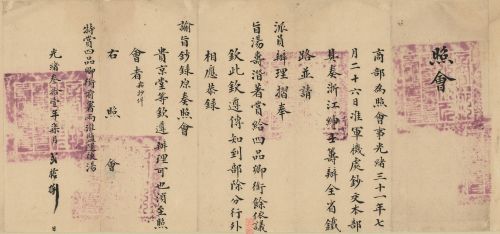 照會
商部為照會事光緒三十一年七
月二十六日准軍機處鈔交本部
具奏浙江紳士籌辦全省鐵
路並請
派員辦理摺奉
旨湯壽潛著賞給四品卿銜餘依議
欽此欽遵傳知到部除分行外
相應恭錄
諭旨鈔錄原奏照會
貴京堂等欽遵辦理可也須至照
會者
右照會
特賞四品卿銜前署兩淮鹽運使湯
光緒叁拾壹年柒月 日